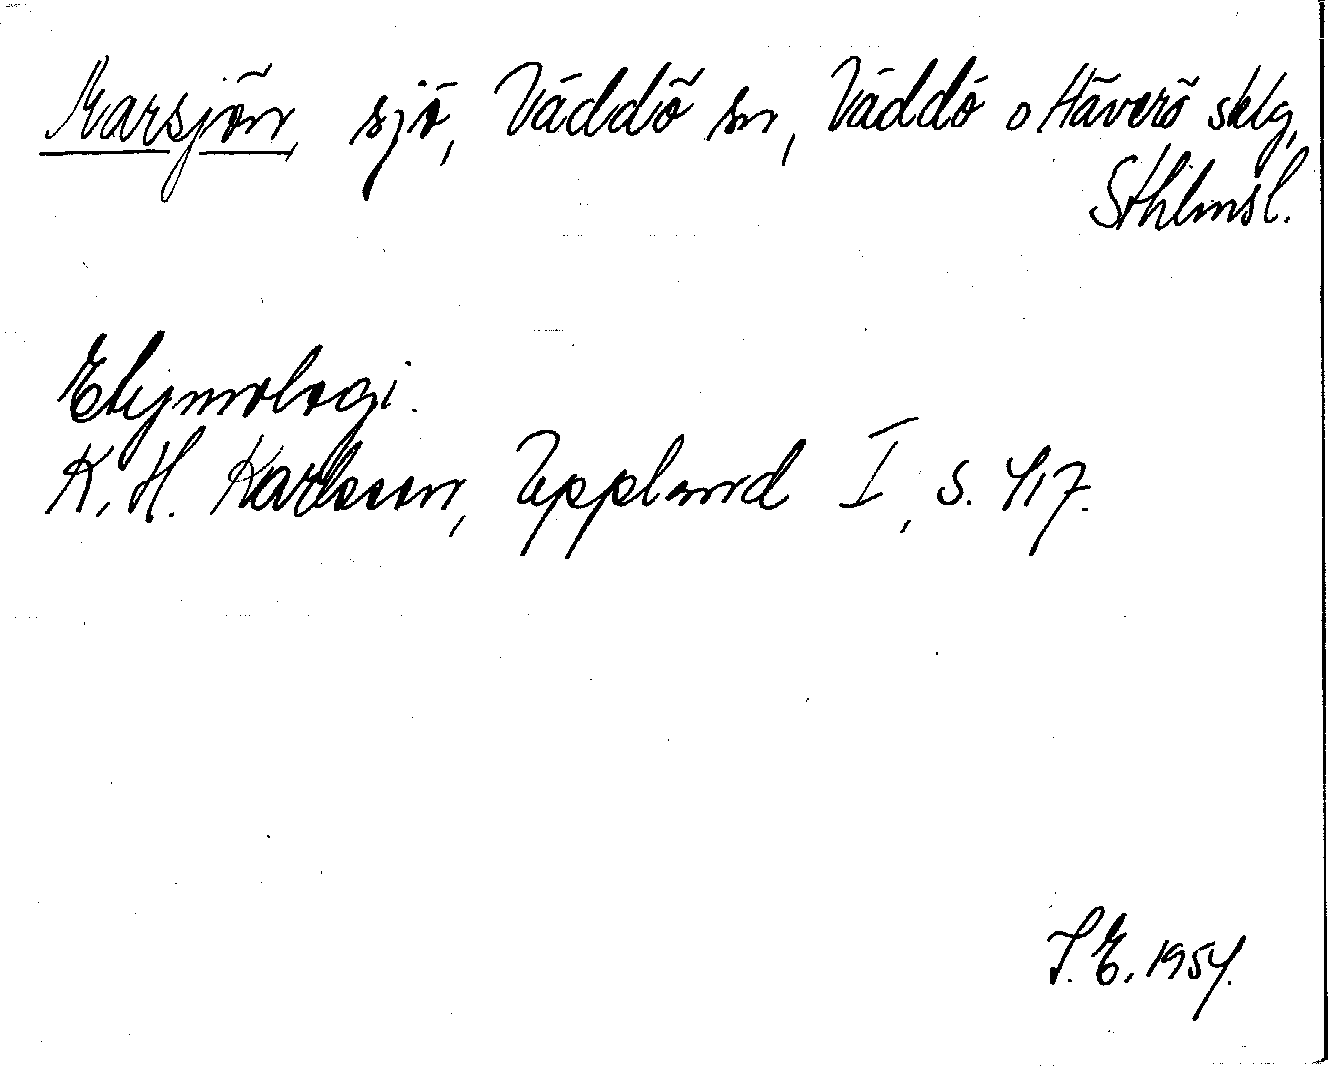 Marsjön, sjö, Väddö sn, Väddö o Häverö sklg,
Sthlmsl.
Etymologi.
K. H. Karlsson, Uppland I, s. 417.
S. E. 1954.